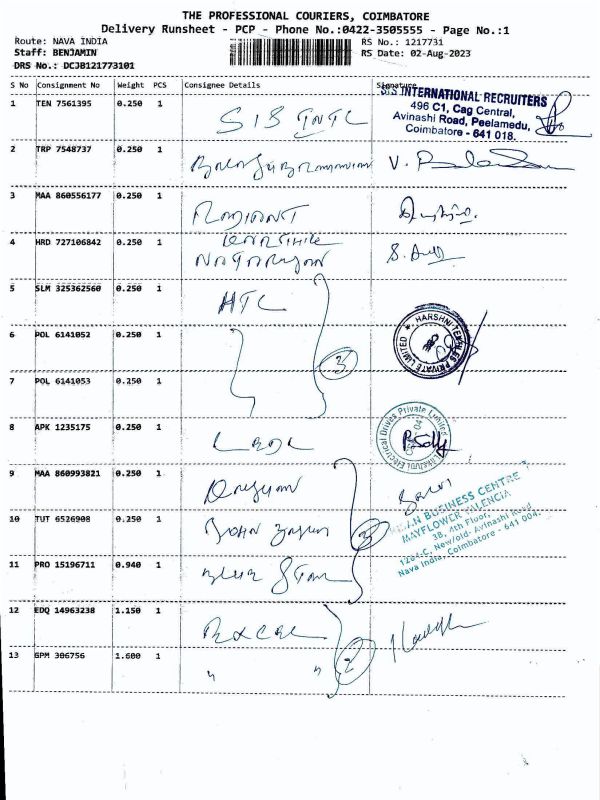 THE PROFESSIONAL COURIERS, COIMBATORE
Delivery Runsheet - PCP - Phone No.:0422-3505555 - Page No.:1
Route: NAVA INDIA
RS No.: 1217731
Staff: BENJAMIN
RS Date: 02-Aug-2023
DRS No.: DCJB121773101
S No Consignment No Weight PCS Consignee Details Signature
SIS INTERNATIONAL RECRUITERS
496 C1, Cag Central,
Avinashi Road, Peelamedu,
Coimbatore - 641 018.
1 TEN 7561395 0.250 1 SIS INTL
2 TRP 7548737 0.250 1
3 MAA 860556177 0.250 1 RADIANT
4 HRD 727106842 0.250 1
5 SLM 325362560 0.250 1 HTL
HARSHNI TEXTILES PRIVATE LIMITED
6 POL 6141052 0.250 1
3
7 POL 6141053 0.250 1
8 APK 1235175 0.250 1
Lakshmi Electrical Drives Private Limited
9 MAA 860993821 0.250 1
BUSINESS CENTRE
MAYFLOWER VALENCIA
3B, 4th Floor,
1264-C, New/old- Avinashi Road
Nava India, Coimbatore - 641 004.
10 TUT 6526908 0.250 1 JOHN
3
11 PRO 15196711 0.940 1 BLUE STAR
12 EDQ 14963238 1.150 1
2
13 GPM 306756 1.600 1 " "